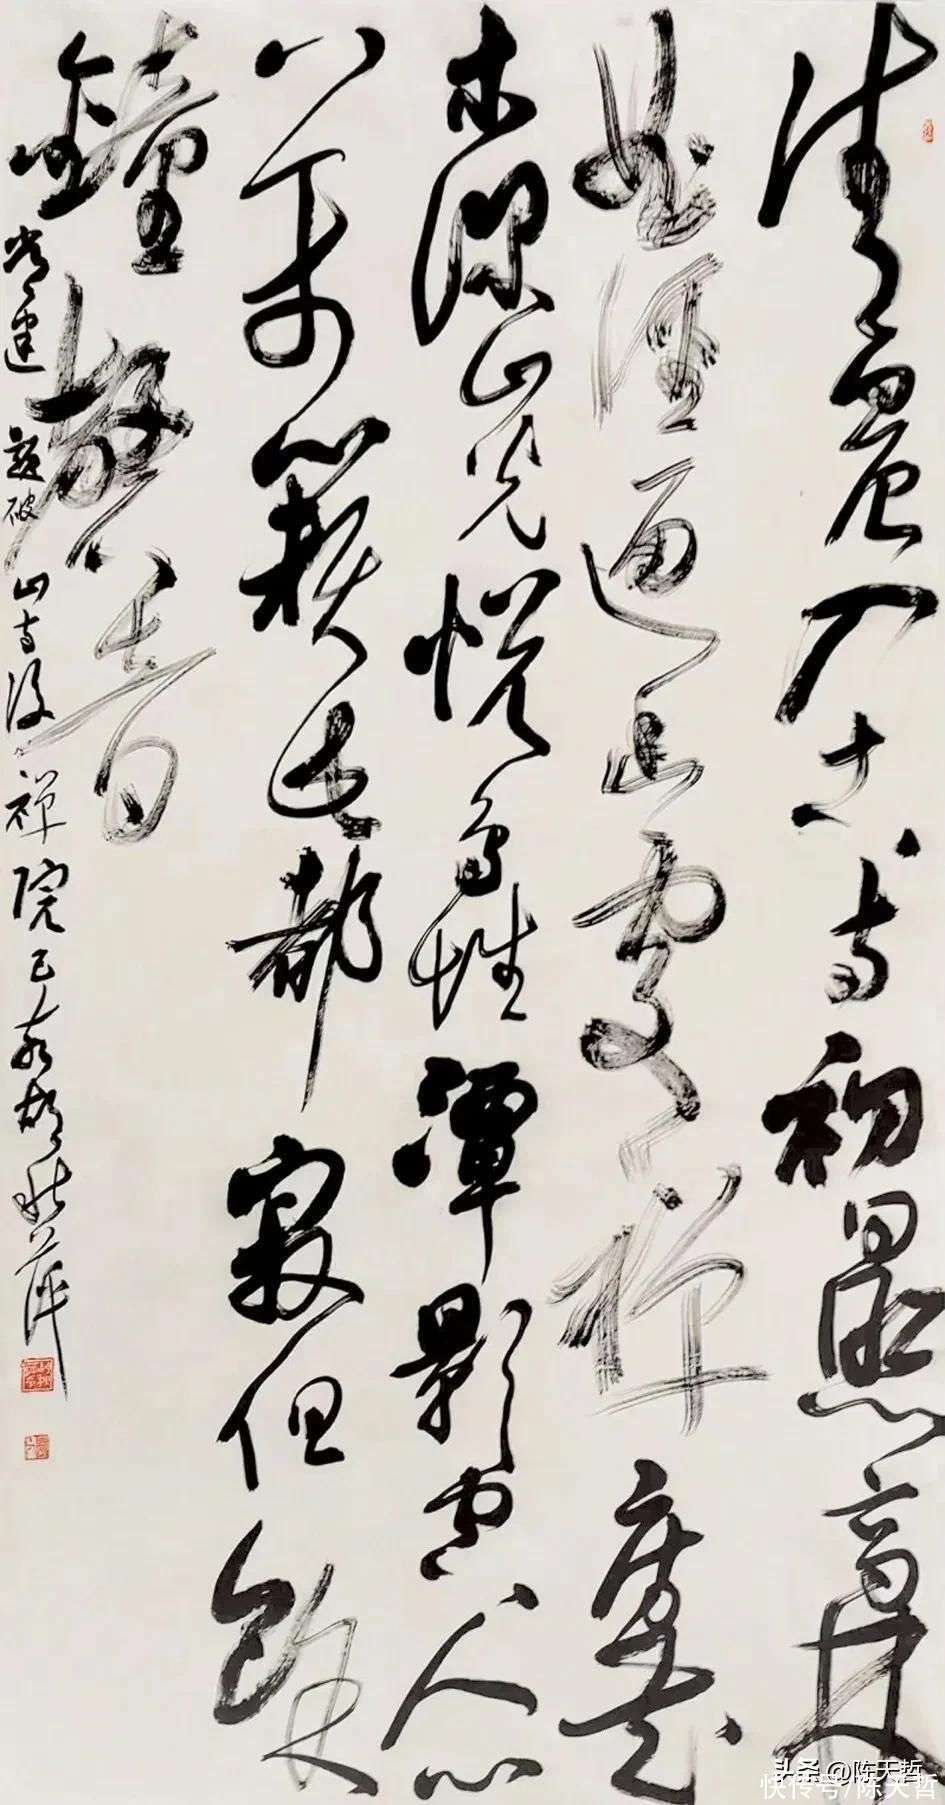 清晨入古寺初日照高林
曲徑通幽處禪房花
木深山光悦鳥性潭影空人心
萬籟此都寂但餘
鐘磬音
常建題破山寺後禪院己亥胡秋萍
头条 @陈天哲
快传号/陈天哲